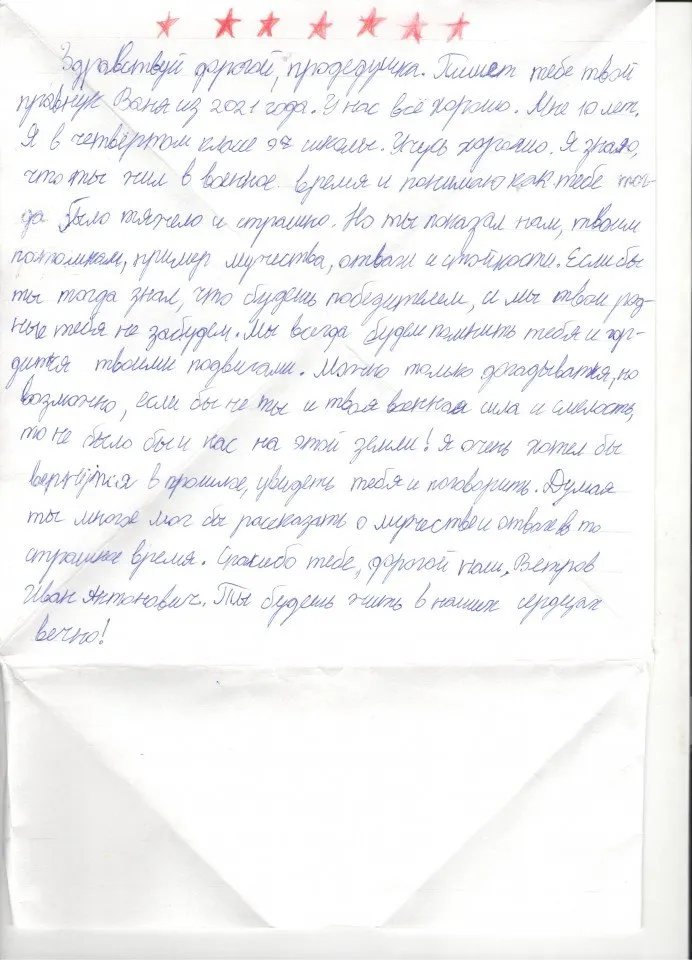 Здравствуй дорогой, прадедушка. Пишет тебе твой
правнук Ваня из 2021 года. У нас всё хорошо. Мне 10 лет.
Я в четвёртом классе школы. Учусь хорошо. Я знаю,
что ты жил в военное время и понимаю как тебе тог-
да было тяжело и страшно. Но ты показал нам, твоим
потомкам, пример мужества, отваги и стойкости. Если бы
ты тогда знал, что будешь победителем, и мы твои род-
ные тебя не забудем. Мы всегда будем помнить тебя и гор-
дится твоими подвигами. Можно только догадыватся, но
возможно, если бы не ты и твоя военная сила и смелость,
то не было бы и нас на этой земли! Я очень хотел бы
в прошлое, увидеть тебя и поговорить. Думаю
ты многое мог бы рассказать о мужестве и отваге в то
страшное время. Спасибо тебе, дорогой наш, Ветров
Иван Антонович. Ты будешь жить в наших сердцах
вечно!